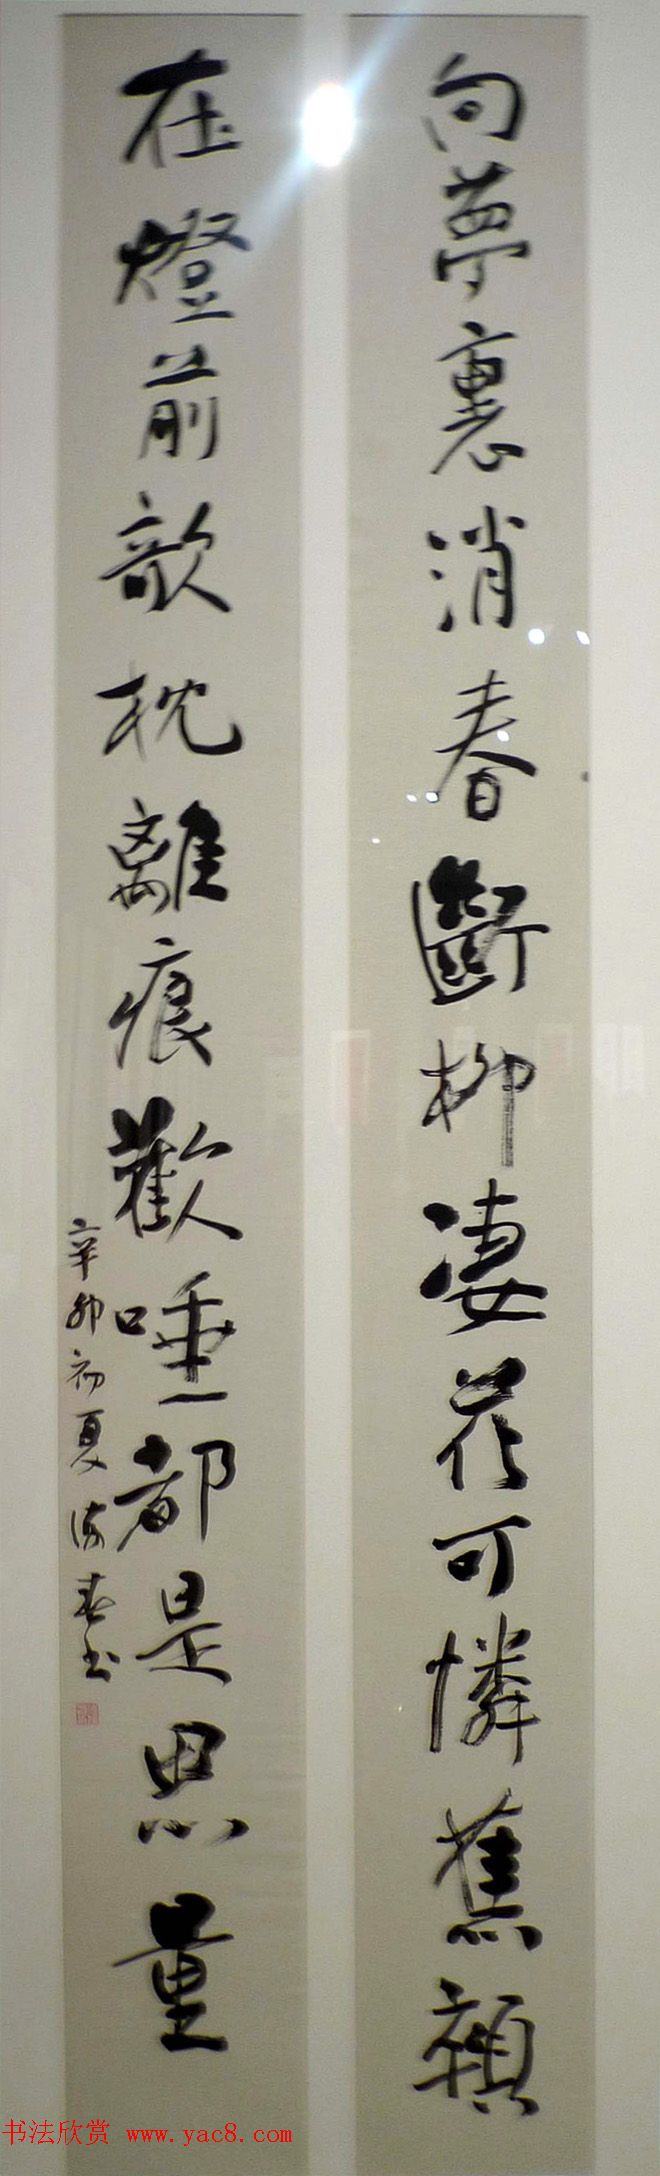 向夢裏消春斷柳淒花可憐蕉顇
在燈前欹枕離痕歡唾都是思量
辛卯初夏書
书法欣赏 www.yac8.com